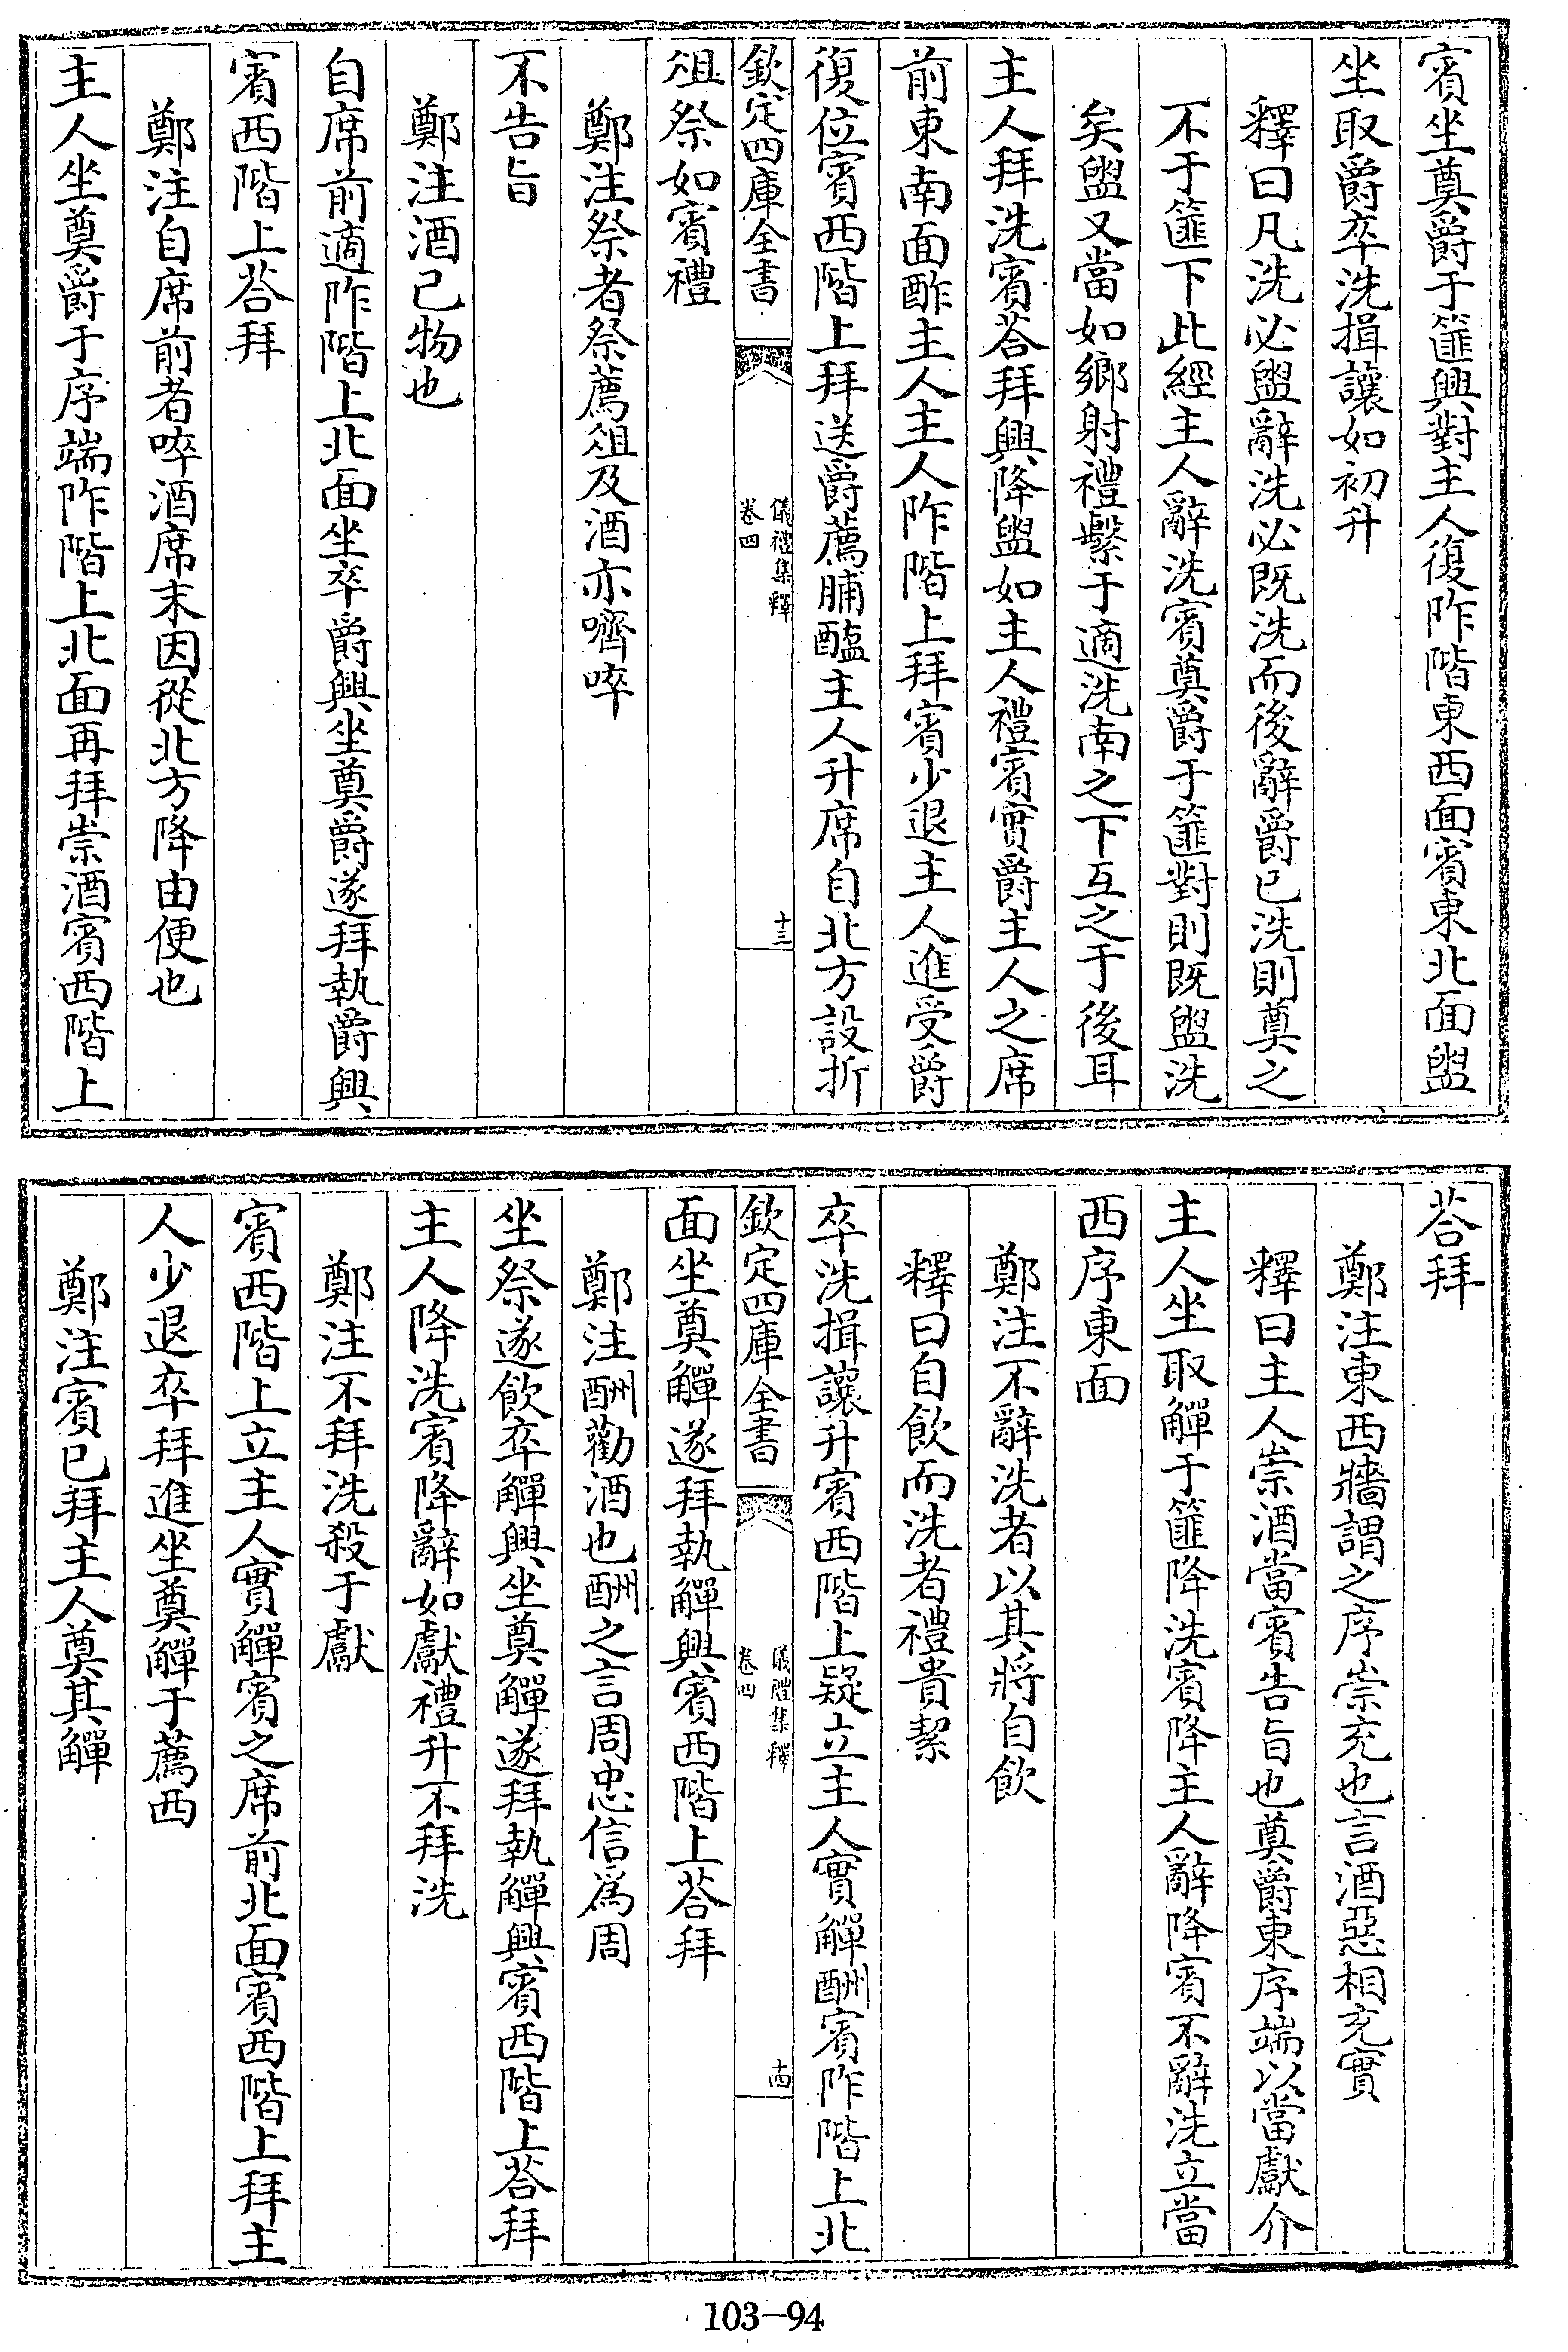 賓坐奠爵于篚興對主人復阼階東西面賓東北面盥
坐取爵卒洗揖讓如初升
釋曰凡洗必盥辭洗必既洗而後辭爵已洗則奠之
不于篚下此經主人辭洗賓奠爵于篚對則既盥洗
矣盥又當如鄉射禮繫于適洗南之下互之于後耳
主人拜洗賓荅拜興降盥如主人禮賓實爵主人之席
前東南面酢主人主人阼階上拜賓少退主人進受爵
復位賓西階上拜送爵薦脯醢主人升席自北方設折
欽定四庫全書
儀禮集釋
卷四
十三
俎祭如賓禮
鄭注祭者祭薦俎及酒亦嚌啐
不告旨
鄭注酒己物也
自席前適阼階上北面坐卒爵興坐奠爵遂拜執爵興
賓西階上荅拜
鄭注自席前者啐酒席末因從北方降由便也
主人坐奠爵于序端阼階上北面再拜崇酒賓西階上
荅拜
鄭注東西牆謂之序崇充也言酒惡相充實
釋曰主人崇酒當賓告旨也奠爵東序端以當獻介
主人坐取觶于篚降洗賓降主人辭降賓不辭洗立當
西序東面
鄭注不辭洗者以其將自飲
釋曰自飲而洗者禮貴絜
卒洗揖讓升賓西階上疑立主人實觶酬賓阼階上北
欽定四庫全書
儀禮集釋
卷四
十四
面坐奠觶遂拜執觶興賓西階上荅拜
鄭注酬勸酒也酬之言周忠信為周
坐祭遂飲卒觶興坐奠觶遂拜執觶興賓西階上荅拜
主人降洗賓降辭如獻禮升不拜洗
鄭注不拜洗殺于獻
賓西階上立主人實觶賓之席前北面賓西階上拜主
人少退卒拜進坐奠觶于薦西
鄭注賓已拜主人奠其觶
103-94